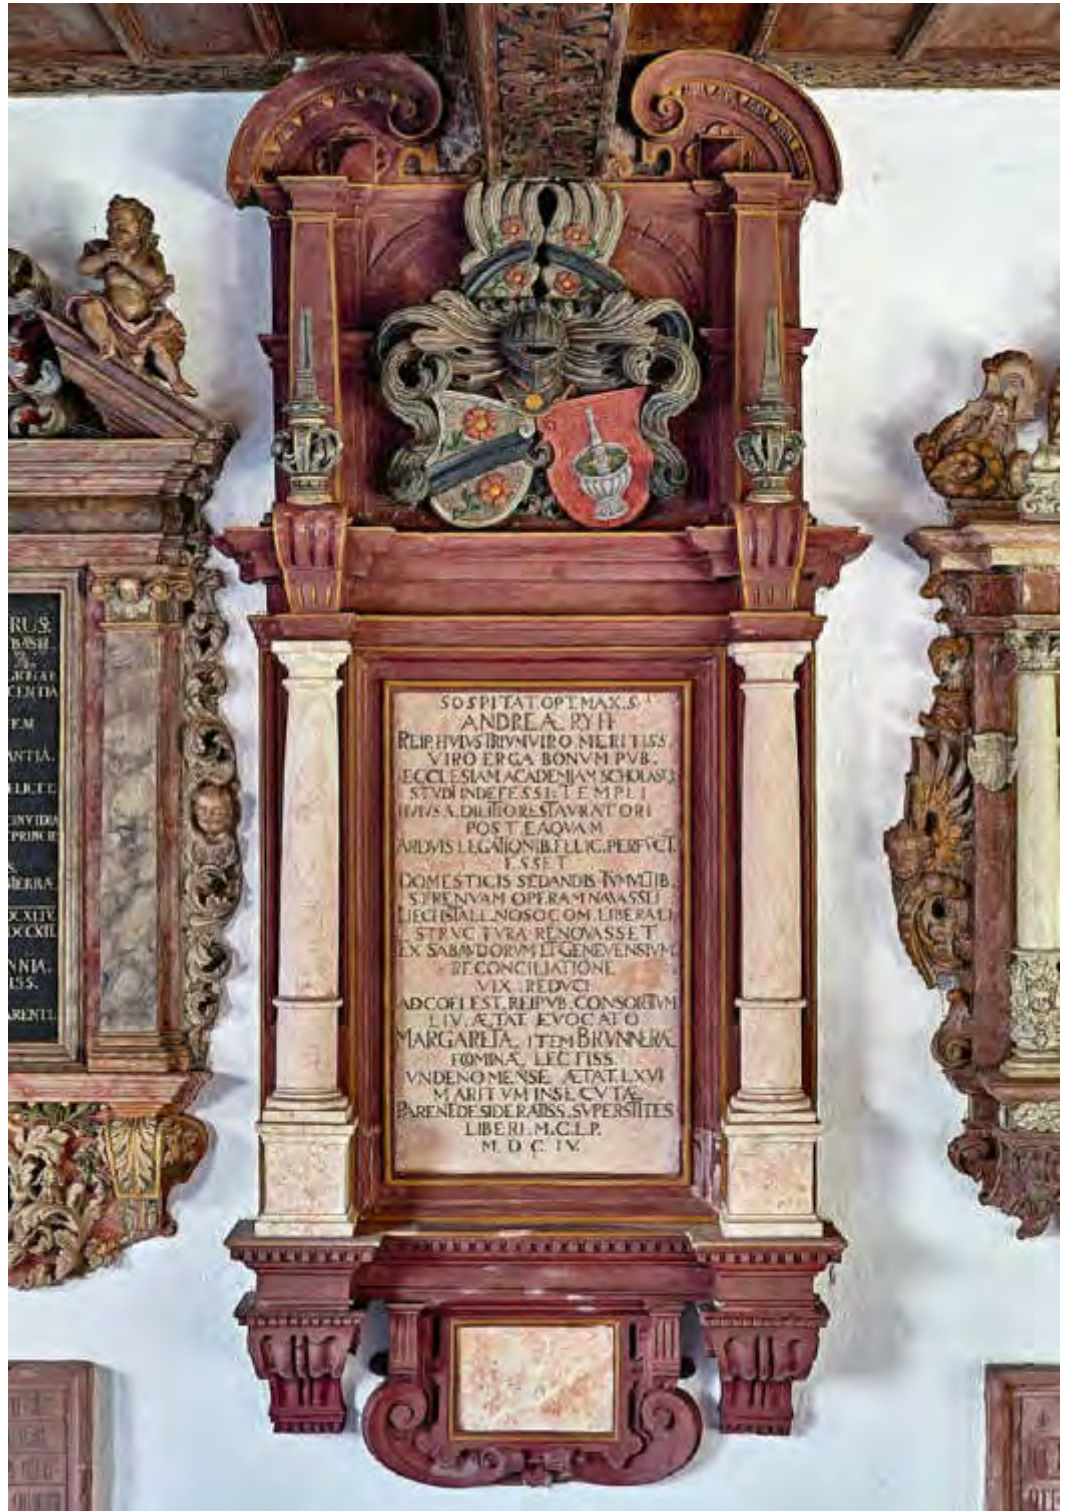 SOSPITAT. OPT. MAX. S.
ANDREÆ RYFF
REIP. HVIVS TRIVMVIRO MERITISS.
VIRO ERGA BONVM PVB.
ECCLESIAM ACADEMIAM SCHOLASQ.
STVDI INDEFESSI: TEMPLI
HVIVS A. DILITIO RESTAVRATORI
POSTEAQVAM
ARDVIS LEGATIONIB. FELIC. PERFVCT.
ESSET
DOMESTICIS SEDANDIS TVMVLTIB.
STRENVAM OPERAM NAVASSET
LIECHSTALL. NOSOCOM. LIBERALI
STRVCTVRA RENOVASSET
EX SABAVDORVM ET GENEVENSIVM
RECONCILIATIONE
VIX REDVCI
AD COELEST. REIPVB. CONSORTIVM
LIV. ÆTAT. EVOCATO
MARGARETÆ ITEM BRVNNERÆ
FOMINÆ LECTISS.
VNDENO MENSE ÆTAT. LXVI
MARITVM INSECVTÆ
PARENT. DESIDERATISS. SVPERSTITES
LIBERI. M. C. L. P.
M. D C. IV.
RUS
BASIL.
CENTIA
EM
ANTIÂ.
INVIDIA
PRINCIP
TERRÆ
NNIA.
ISS.
ARENTI.